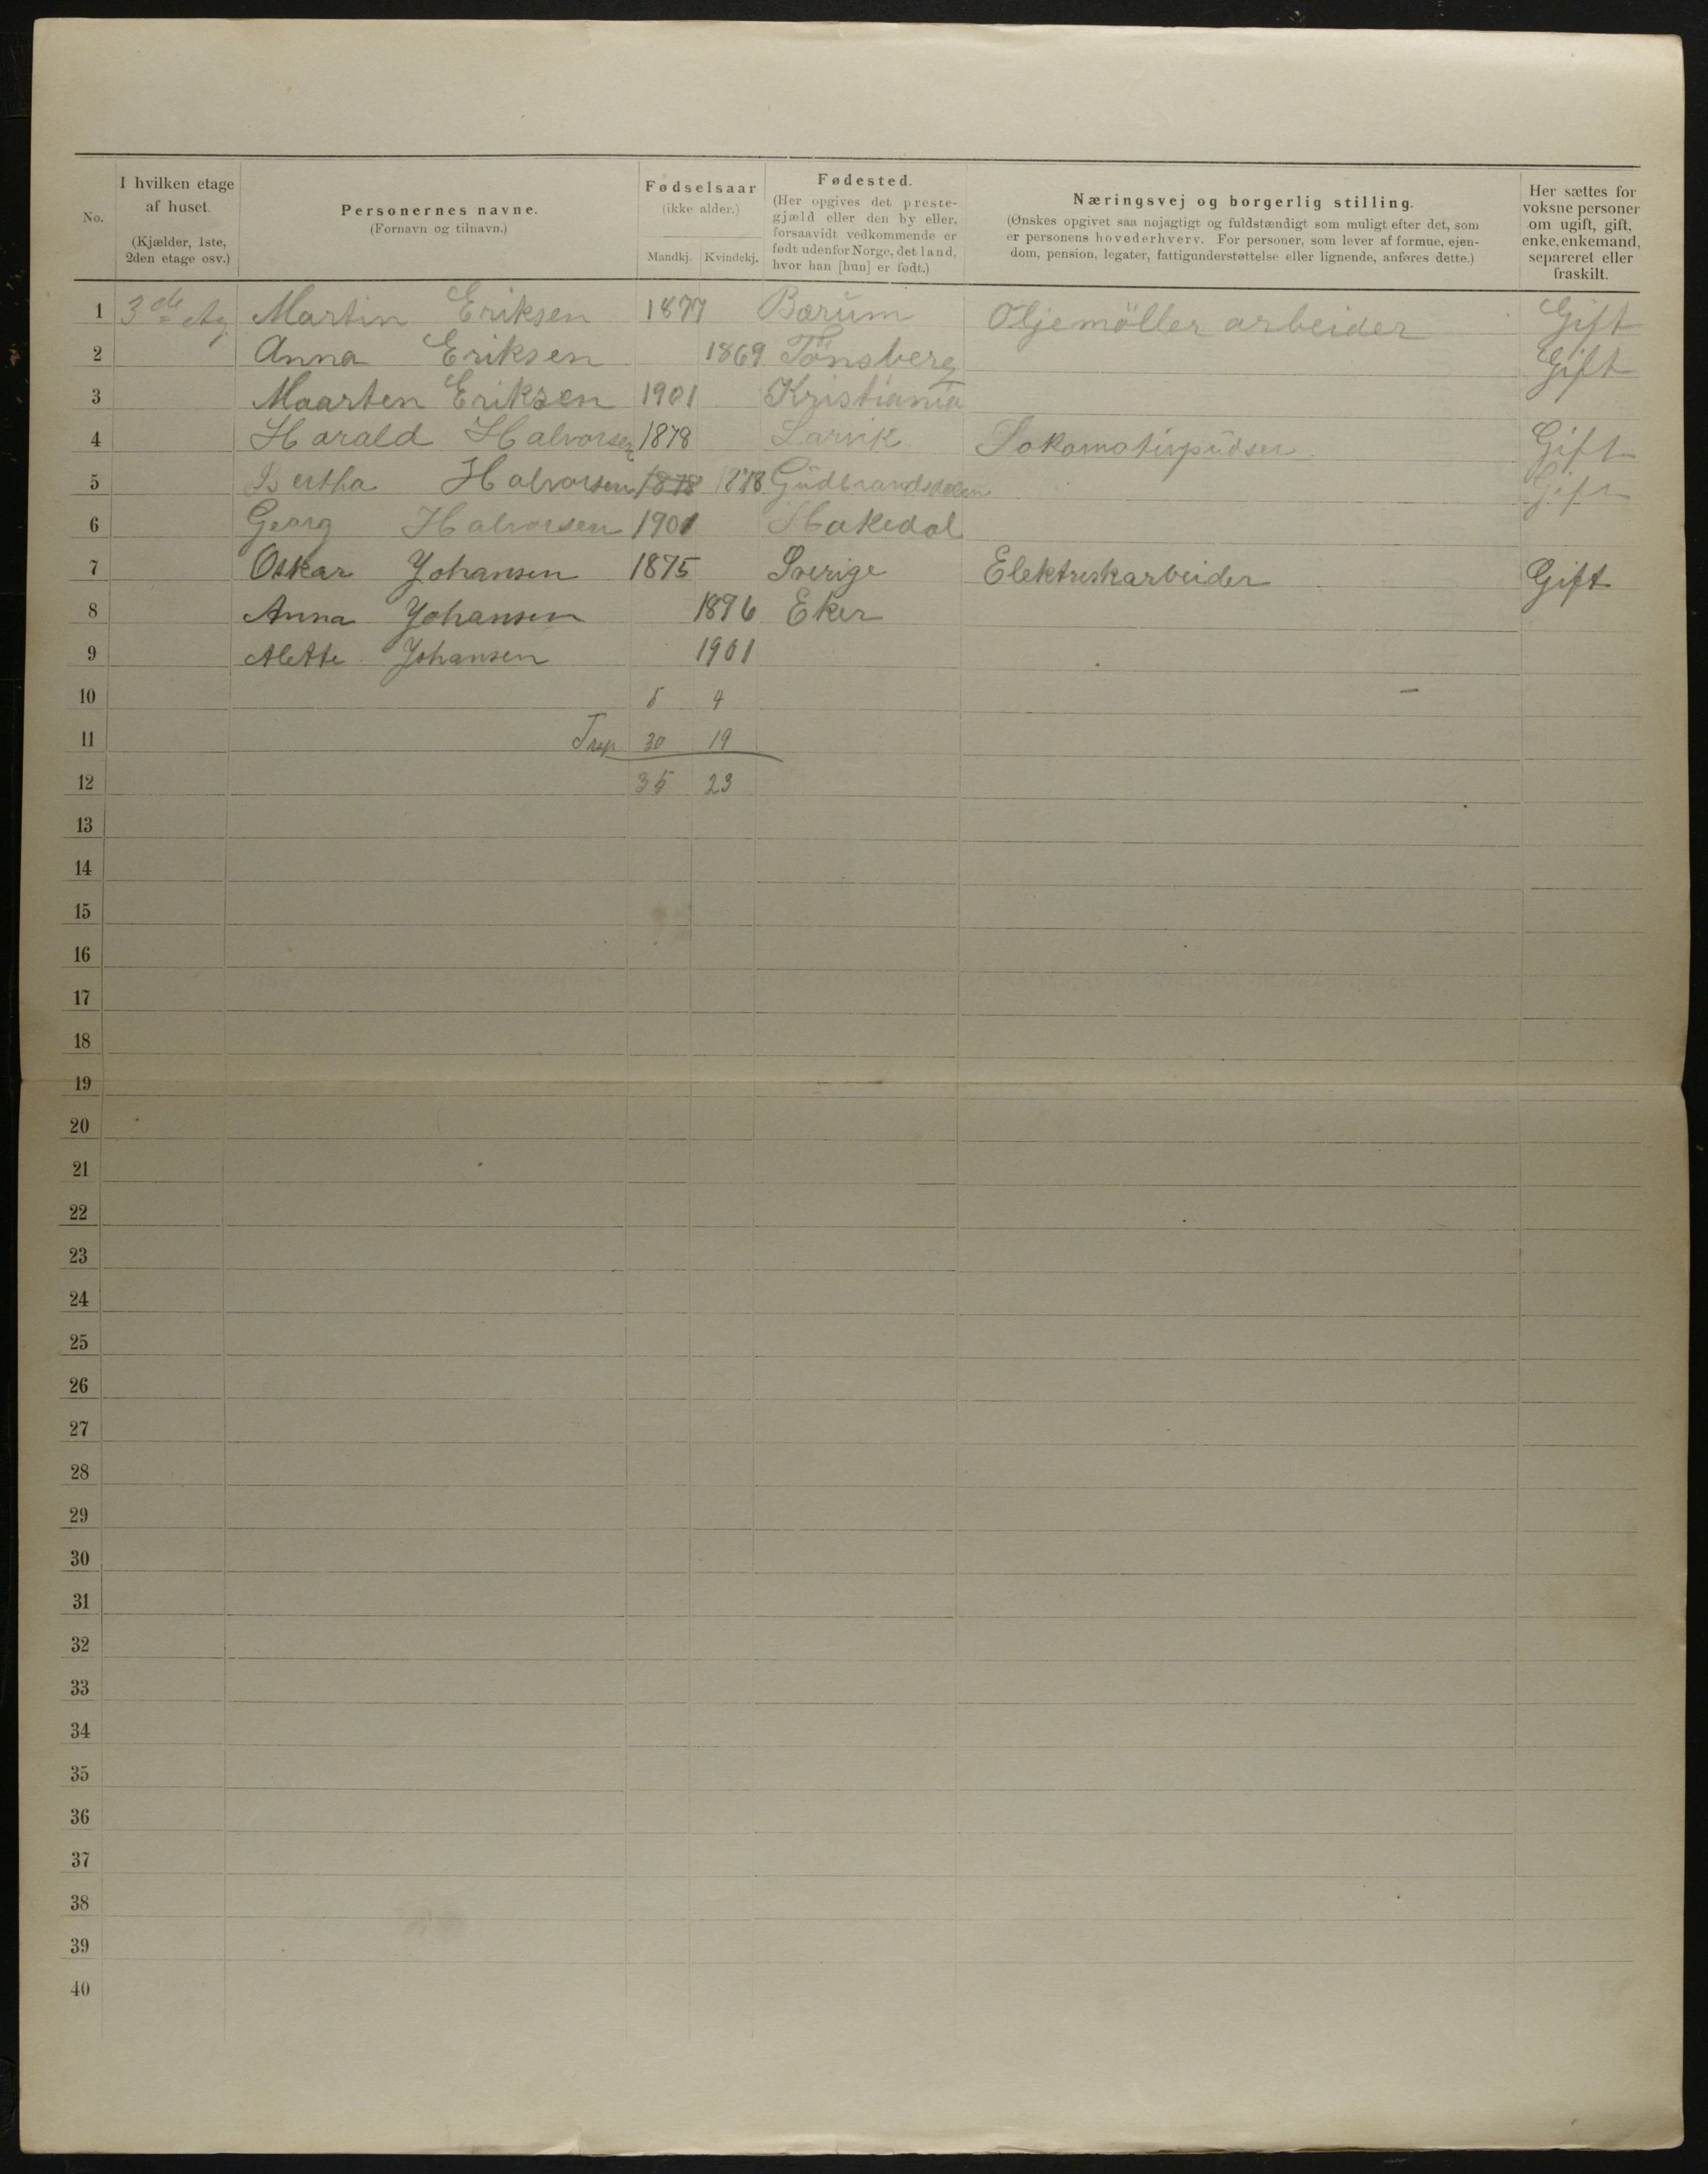 No.
I hvilken etage
af huset.
(Kjælder, 1ste,
2den etage osv.)
Personernes navne.
(Fornavn og tilnavn.)
Fødselsaar
(ikke alder.)
Mandkj. Kvindekj.
Fødested.
(Her opgives det preste-
gjæld eller den by eller,
forsaavidt vedkommende er
født udenfor Norge, det land,
hvor han [hun] er født.)
Næringsvej og borgerlig stilling.
(Ønskes opgivet saa nøjagtigt og fuldstændigt som muligt efter det, som
er personens hovederhverv. For personer, som lever af formue, ejen-
dom, pension, legater, fattigunderstøttelse eller lignende, anføres dette.)
Her sættes for
voksne personer
om ugift, gift,
enke, enkemand,
separeret eller
fraskilt.
1 3de Martin Eriksen 1877 Bærum Oljemöller arbeider Gift
2 Anna Eriksen 1869 Tönsberg Gift
3 Maarten Eriksen 1901 Kristiania
4 Harald Halvorsen 1878 Larvik Lokomotivpudser Gift
5 Bertha Halvorsen 1878 1878 Gudbrandsdalen Gift
6 Georg Halvorsen 1901 Hakedal
7 Oskar Johansen 1875 Sverige Elektriskarbeider Gift
8 Anna Johansen 1896 Eker
9 Alette Johansen 1901
10 5 4
11 30 19
12 35 23
13
14
15
16
17
18
19
20
21
22
23
24
25
26
27
28
29
30
31
32
33
34
35
36
37
38
39
40